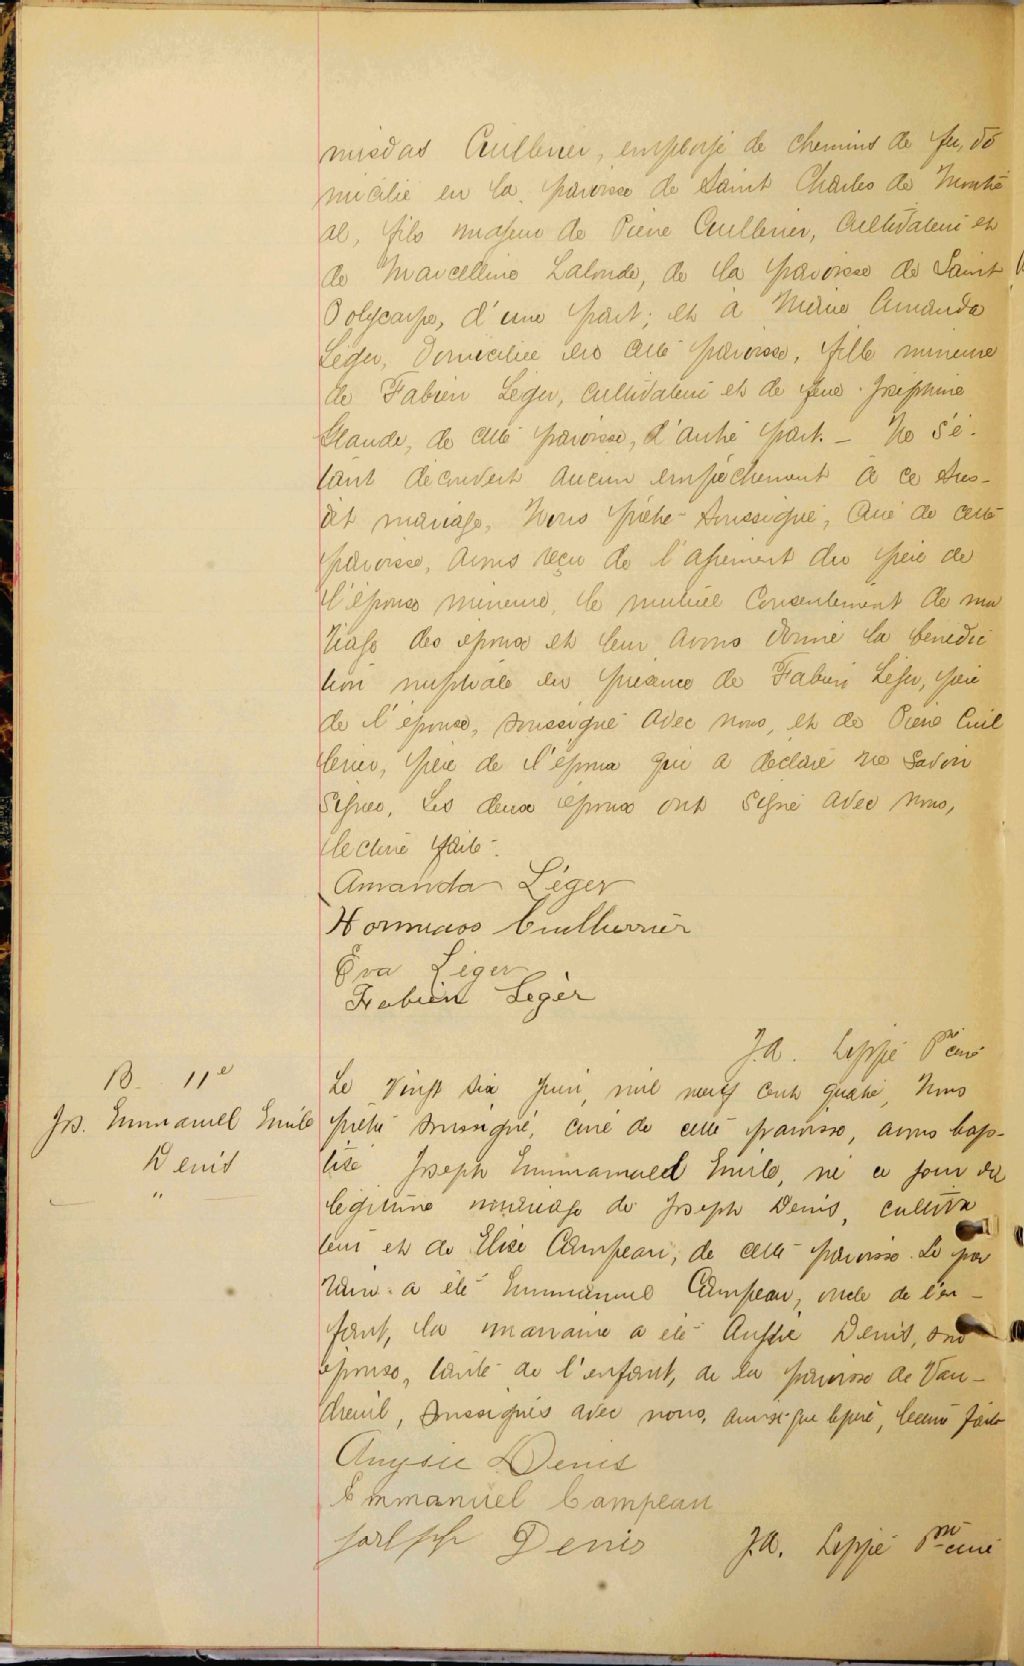 misdas Cuillerier, employé de chemins de fer, do
micilié en la paroisse de Saint Charles de Montré
al, fils majeur de Pierre Cuillerier, cultivateur et
de Marcelline Lalonde, de la paroisse de Saint
Polycarpe, d'une part; et à Marie Amanda
Léger, domiciliée en cette paroisse, fille mineure
de Fabien Léger, cultivateur et de feue Joséphine
Glaude, de cette paroisse, d'autre part. – Ne s'é-
tant découvert aucun empêchement à ce sus-
dit mariage, Nous prêtre soussigné, curé de cette
paroisse, avons reçu de l'agrément du père de
l'épouse mineure, le mutuel consentement de ma
riage des époux et leur avons donné la bénédic
tion nuptiale en présence de Fabien Léger, père
de l'épouse, soussigné avec nous, et de Pierre Cuil
lerier, père de l'époux qui a déclaré ne savoir
signer. Les deux époux ont signé avec nous,
lecture faite.
Amanda Léger
Hormidas Cuillierrier
Eva Léger
Fabien Légèr
J.A. Lippé Ptre curé
B. 11e
Jos. Emmanuel Emile
Denis
"
Le vingt six juin, mil neuf cent quatre, Nous
prêtre soussigné, curé de cette paroisse, avons bap-
tisé Joseph Emmanuel Emile, né ce jour du
légitime mariage de Joseph Denis, cultiva
teur et de Elise Campeau, de cette paroisse. Le par
rain a été Emmanuel Campeau, oncle de l'en-
fant, la marraine a été Anysie Denis, son
épouse, tante de l'enfant, de la paroisse de Vau-
dreuil, soussignés avec nous, ainsi que le père, lecture faite
Anysie Denis
Emmanuel Campeau
Joseph Denis J.A. Lippé Ptre curé